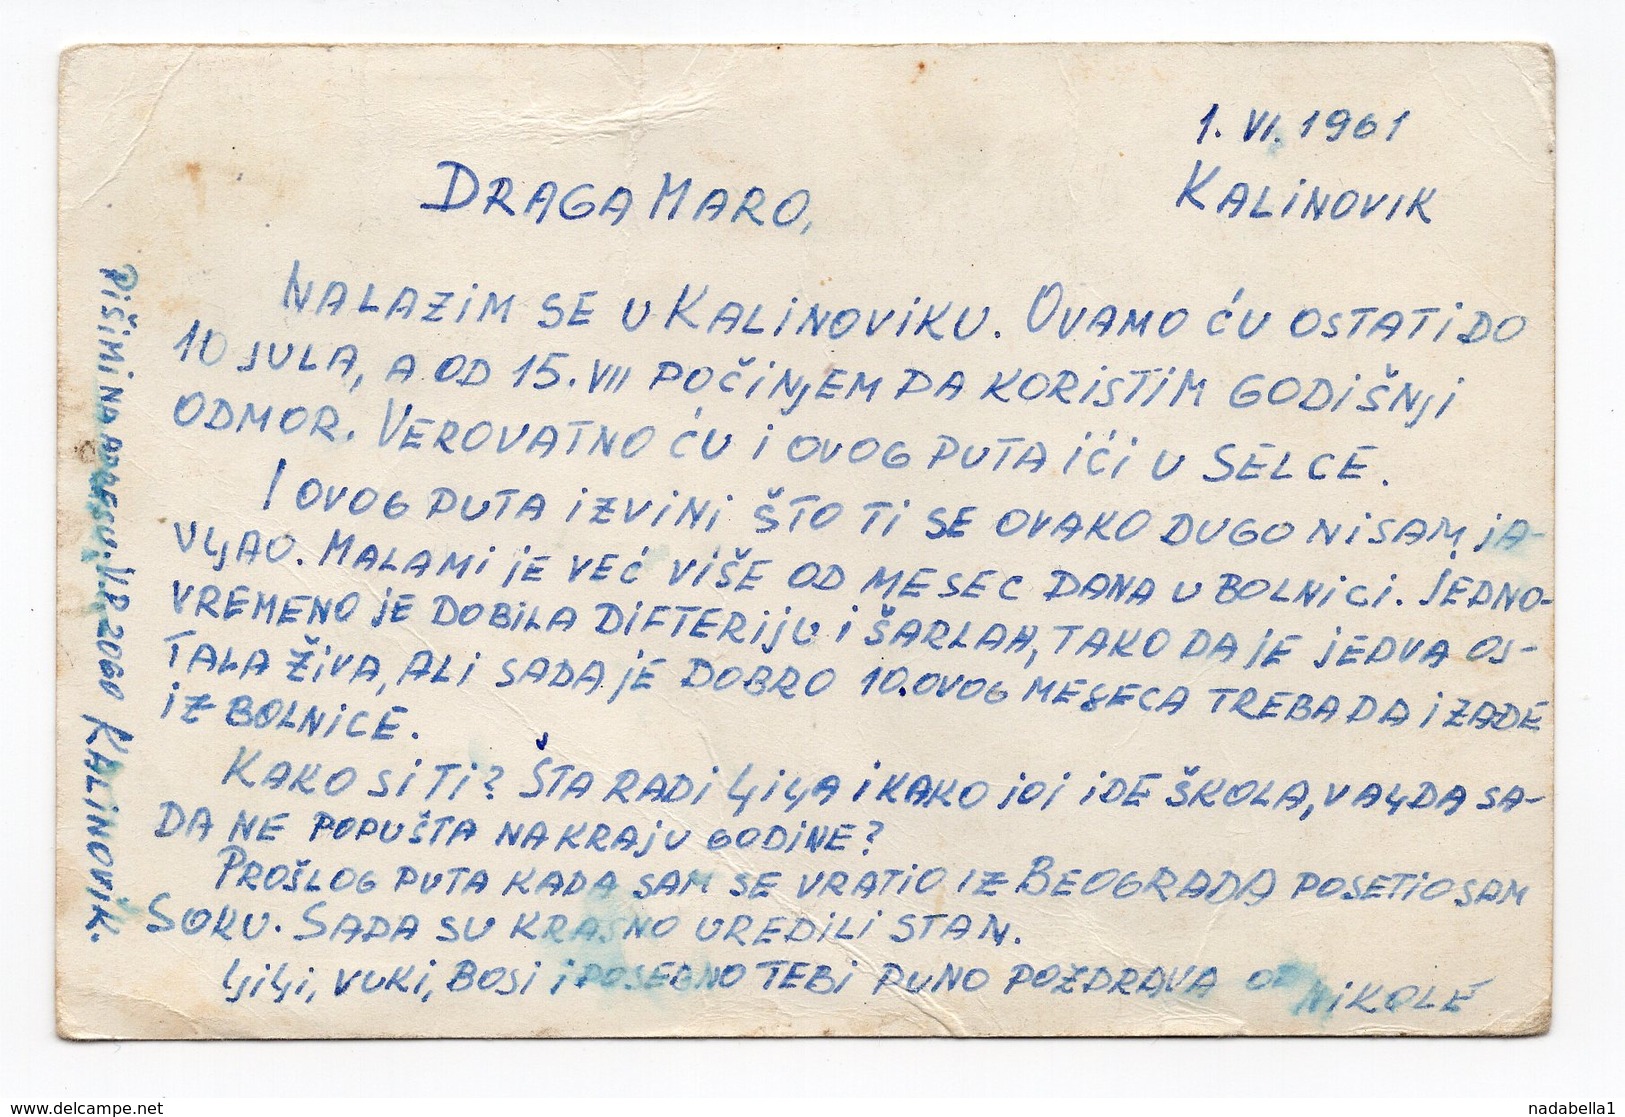 1. VI. 1961
KALiNOVIK
DRAGA MARO,
NALAZiM SE U KALiNOViKU. OVAMO ĆU OSTATi DO
10 JULA, A OD 15. VII POČiNjEM DA KORiSTiM GODiŠNji
ODMOR. VEROVATNO ĆU i OVOG PUTA iĆi U SELCE.
I OVOG PUTA iZViNi ŠTO Ti SE OVAKO DUGO NiSAM jA-
VLjAO. MALA Mi jE VEĆ ViŠE OD MESEC DANA U BOLNiCi. jEDNO-
VREMENO jE DOBiLA DiFTERijU i ŠARLAH, TAKO DA jE jEDVA OS-
TALA ŽiVA, ALi SADA jE DOBRO 10. OVOG MESECA TREBA DA iZAĐE
iZ BOLNiCE.
KAKO Si Ti? ŠTA RADi LjiLjA i KAKO jOj iDE ŠKOLA, VALjDA SA-
DA NE POPUŠTA NA KRAjU GODiNE?
PROŠLOG PUTA KADA SAM SE VRATiO iZ BEOGRADA POSETiO SAM
SOKU. SADA SU KRASNO UREDiLi STAN.
LjiLji, VUKi, BOSi i POSEBNO TEBi PUNO POZDRAVA OD NiKOLE
PiŠi Mi NA ADRESU: V.P. 2060 KALiNOViK.
delcampe.net
nadabella1